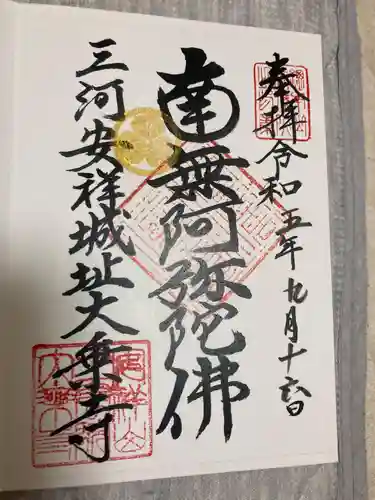 奉拝 令和五年九月十六日
南無阿弥陀佛
三河安祥城址大乗寺